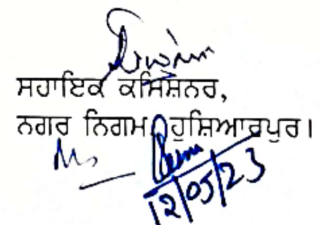 ਸਹਾਇਕ ਕਮਿਸ਼ਨਰ,
ਨਗਰ ਨਿਗਮ ਹੁਸ਼ਿਆਰਪੁਰ।
12/05/23